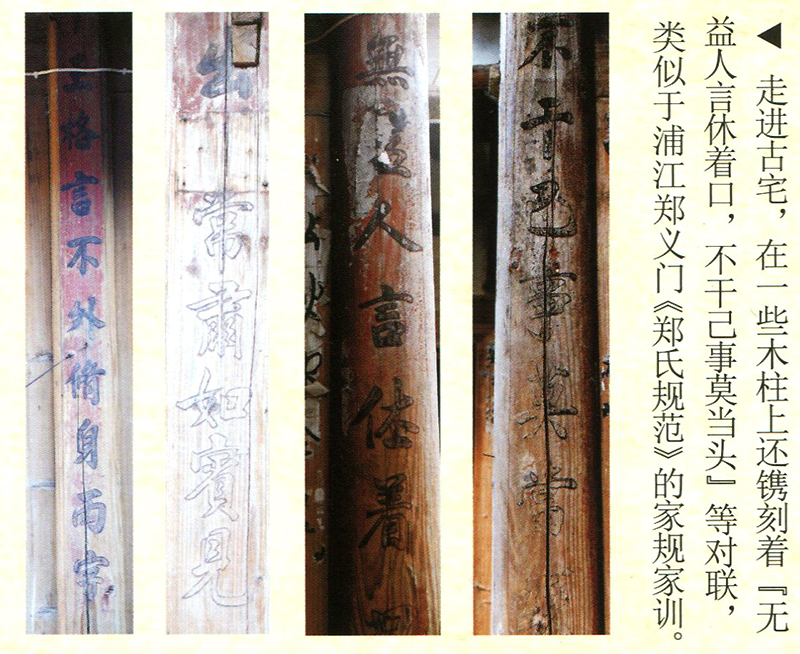 ◀ 走进古宅，在一些木柱上还镌刻着『无
益人言休着口，不干己事莫当头』等对联，
类似于浦江郑义门《郑氏规范》的家规家训。
不干己事莫当
無益人言休着口
出 常肅如賓見
格言不外脩身兩字